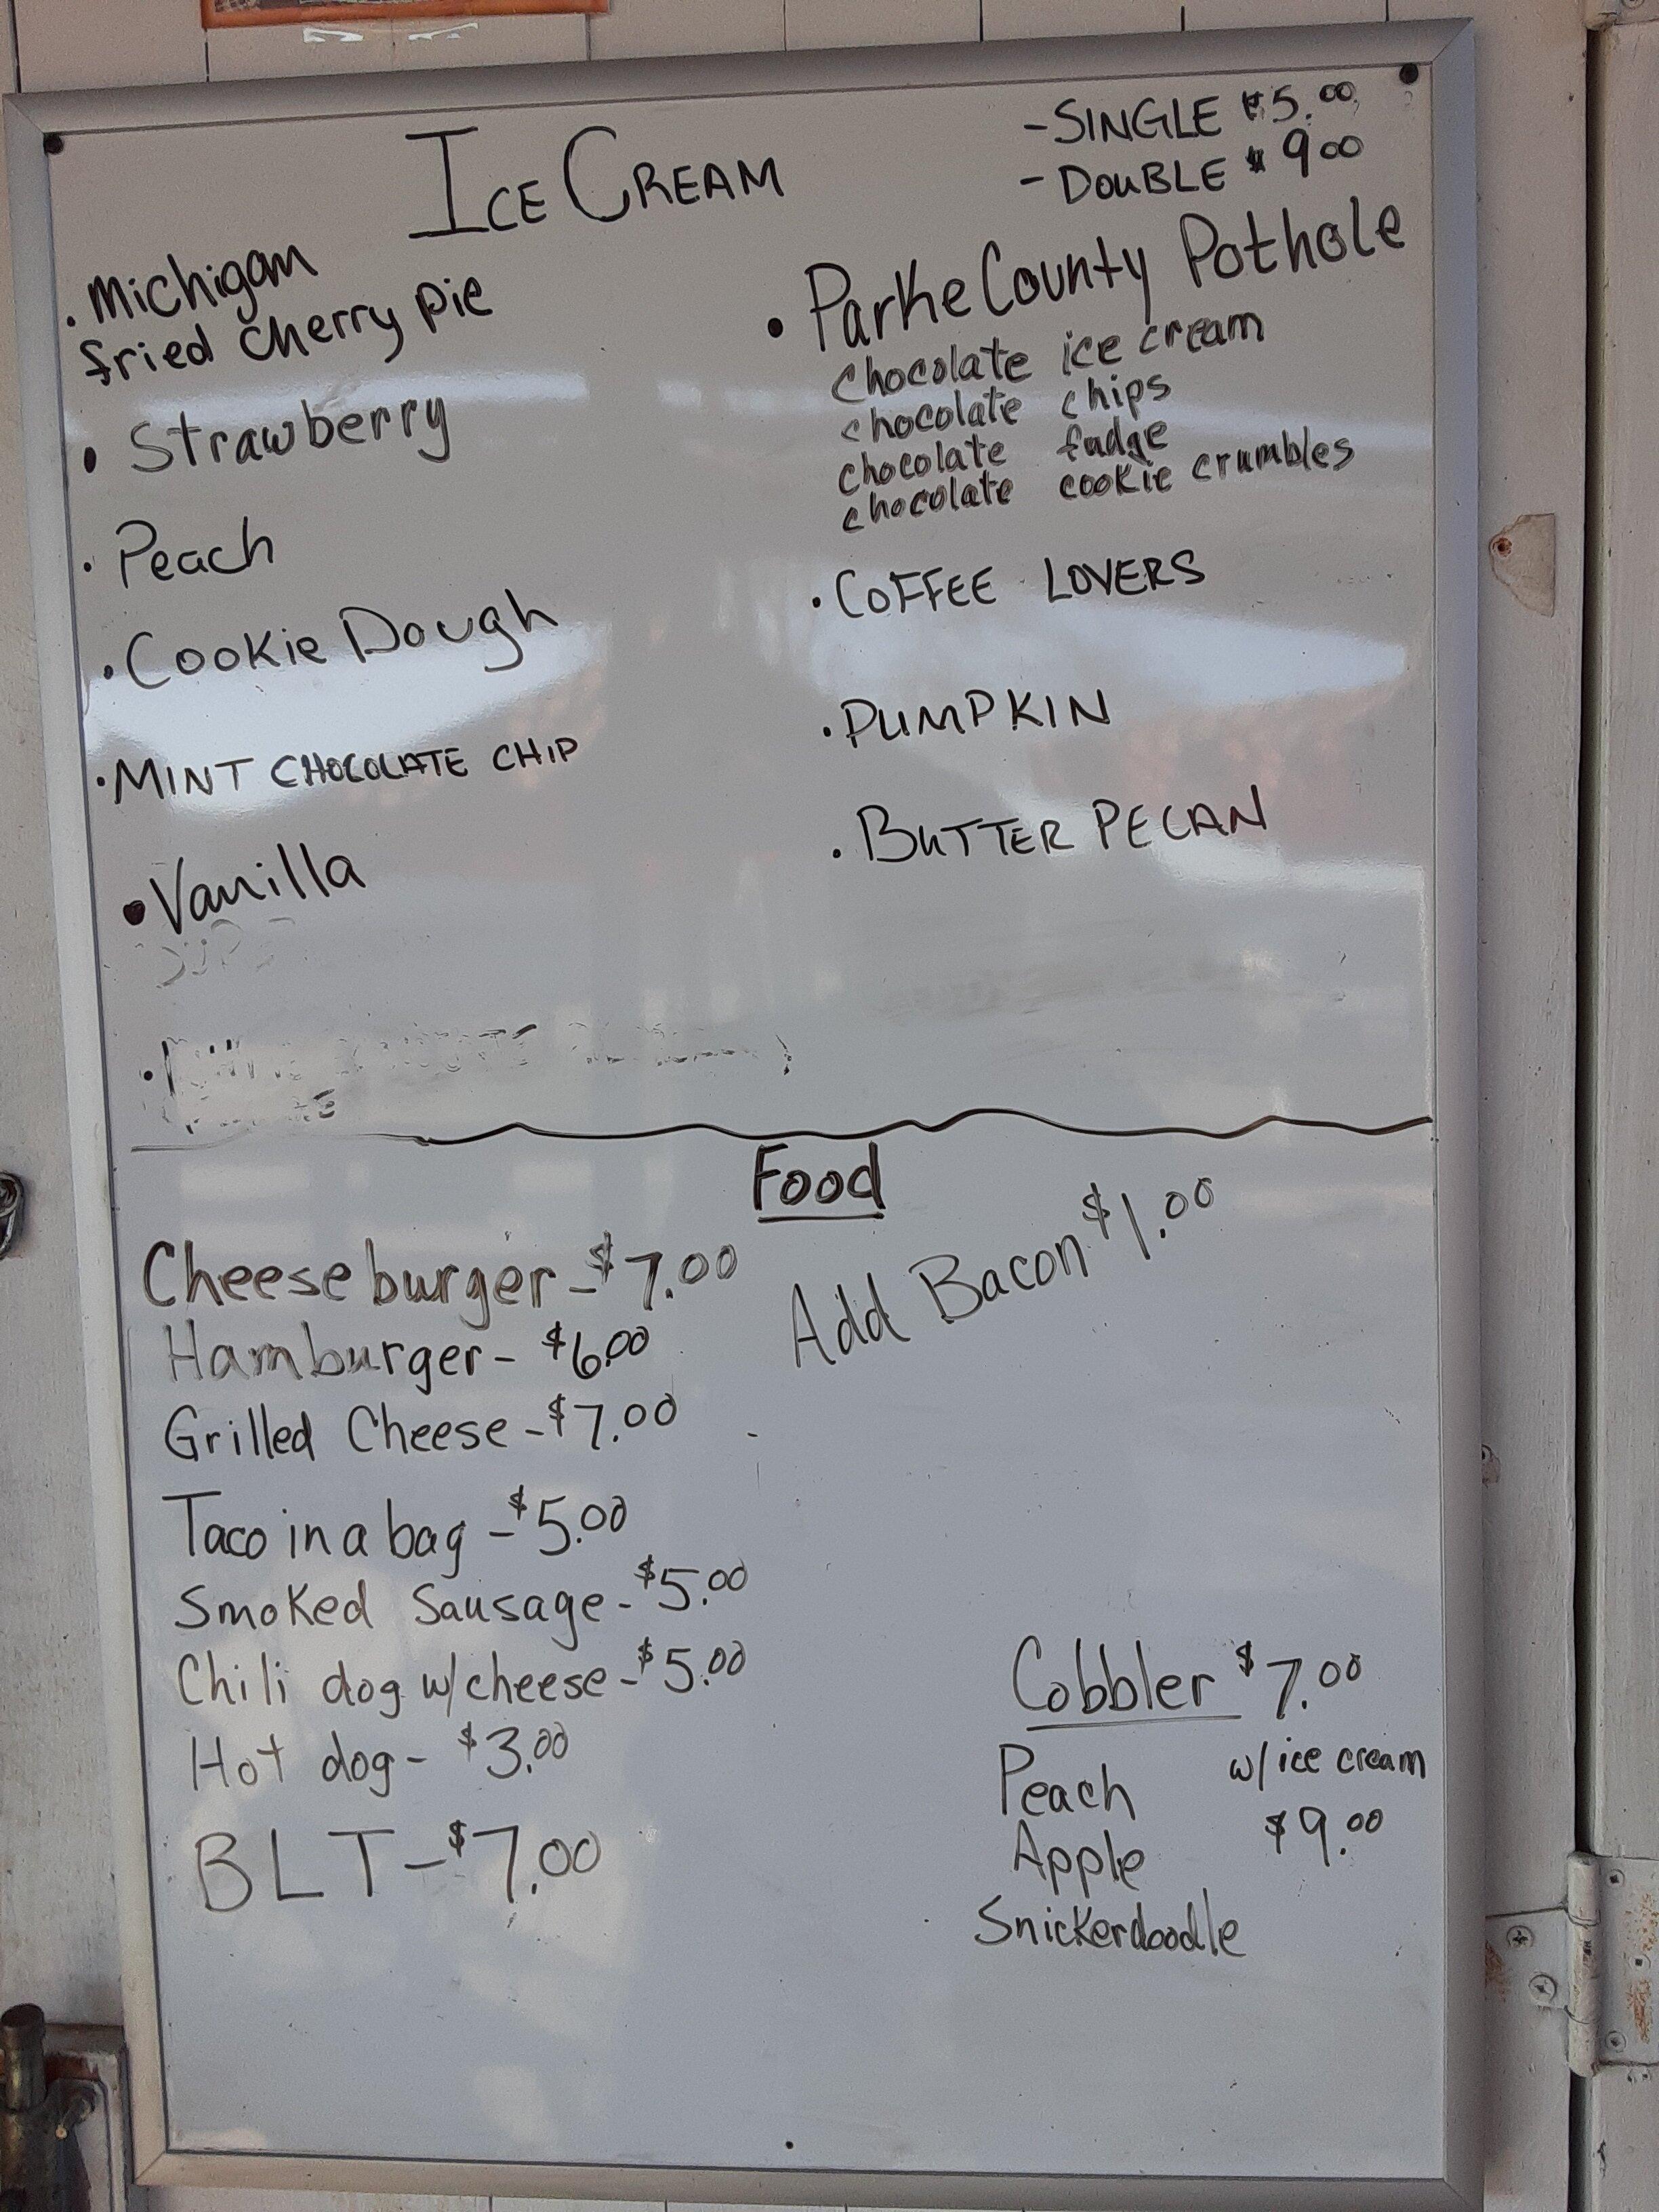 ICE CREAM
- SINGLE $5.00
- DOUBLE $9.00
• Michigan
fried cherry pie
• Strawberry
• Peach
• Cookie Dough
• MINT CHOCOLATE CHIP
• Vanilla
• Parke County Pothole
chocolate ice cream
chocolate chips
chocolate fudge
chocolate cookie crumbles
• COFFEE LOVERS
• PUMPKIN
• BUTTER PECAN
Food
Cheeseburger - $7.00
Add Bacon $1.00
Hamburger - $6.00
Grilled Cheese - $7.00
Taco in a bag - $5.00
Smoked Sausage - $5.00
Chili dog w/cheese - $5.00
Hot dog - $3.00
BLT - $7.00
Cobbler $7.00
Peach
Apple
Snickerdoodle
w/ ice cream
$9.00